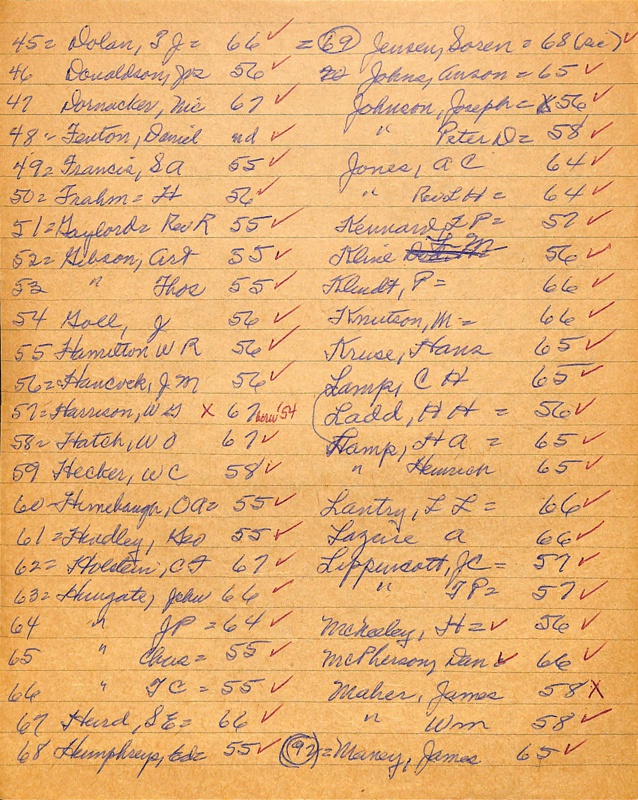 45= Dolan, P J= 66 ✓
46 Donaldson, Jas 56 ✓
47 Dornacker, Nic 67 ✓
48- Fenton, Daniel nd ✓
49= Francis, S A 55 ✓
50= Frahm= H 56 ✓
51= Gaylord= Rev R 55 ✓
52= Gibson, Art 55 ✓
53 " Thos 55 ✓
54 Goll, J 56 ✓
55 Hamilton W R 56 ✓
56= Hancock, J M 56 ✓
57= Harrison, W X 67 '54
58= Hatch, W O 67 ✓
59 Hecker, W C 58 ✓
60- Himebaugh, O A= 55 ✓
61= Hindley, Geo 55 ✓
62= Holstein, C F 67 ✓
63= Hungate, John 66 ✓
64 " J P = 64 ✓
65 " Chas= 55 ✓
66 " T C = 55 ✓
67 Hurd, S E= 66 ✓
68 Humphreys, Ed= 55 ✓
= 69 Jensen, Soren = 68 (sic) ✓
70 Johns, Anson = 65 ✓
Johnson, Joseph = 56 ✓
" Peter D= 58 ✓
Jones, A C 64 ✓
" Rev L H = 64 ✓
Kennard, L P= 57 ✓
Kline F M 56 ✓
Klindt, P = 66 ✓
Knutson, M = 66 ✓
Kruse, Hans 65 ✓
Lamp, C H 65 ✓
Ladd, H H = 56 ✓
Lamp, H A = 65 ✓
" Heinrich 65 ✓
Lantry, L L = 66 ✓
Lazeire A 66 ✓
Lippincott, J C = 57 ✓
" T P= 57 ✓
McKeeley, H= ✓ 56 ✓
McPherson, Dan ✓ 66 ✓
Maher, James 58 X
" Wm 58 ✓
92 = Maney, James 65 ✓